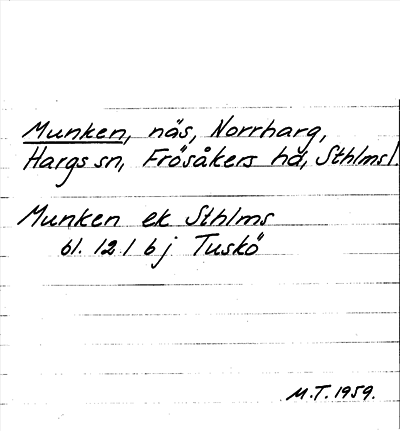 Munken, näs, Norrharg,
Hargs sn, Frösåkers hd, Sthlms l.
Munken ek Sthlms
bl. 12 1 b j Tuskö
M.T. 1959.